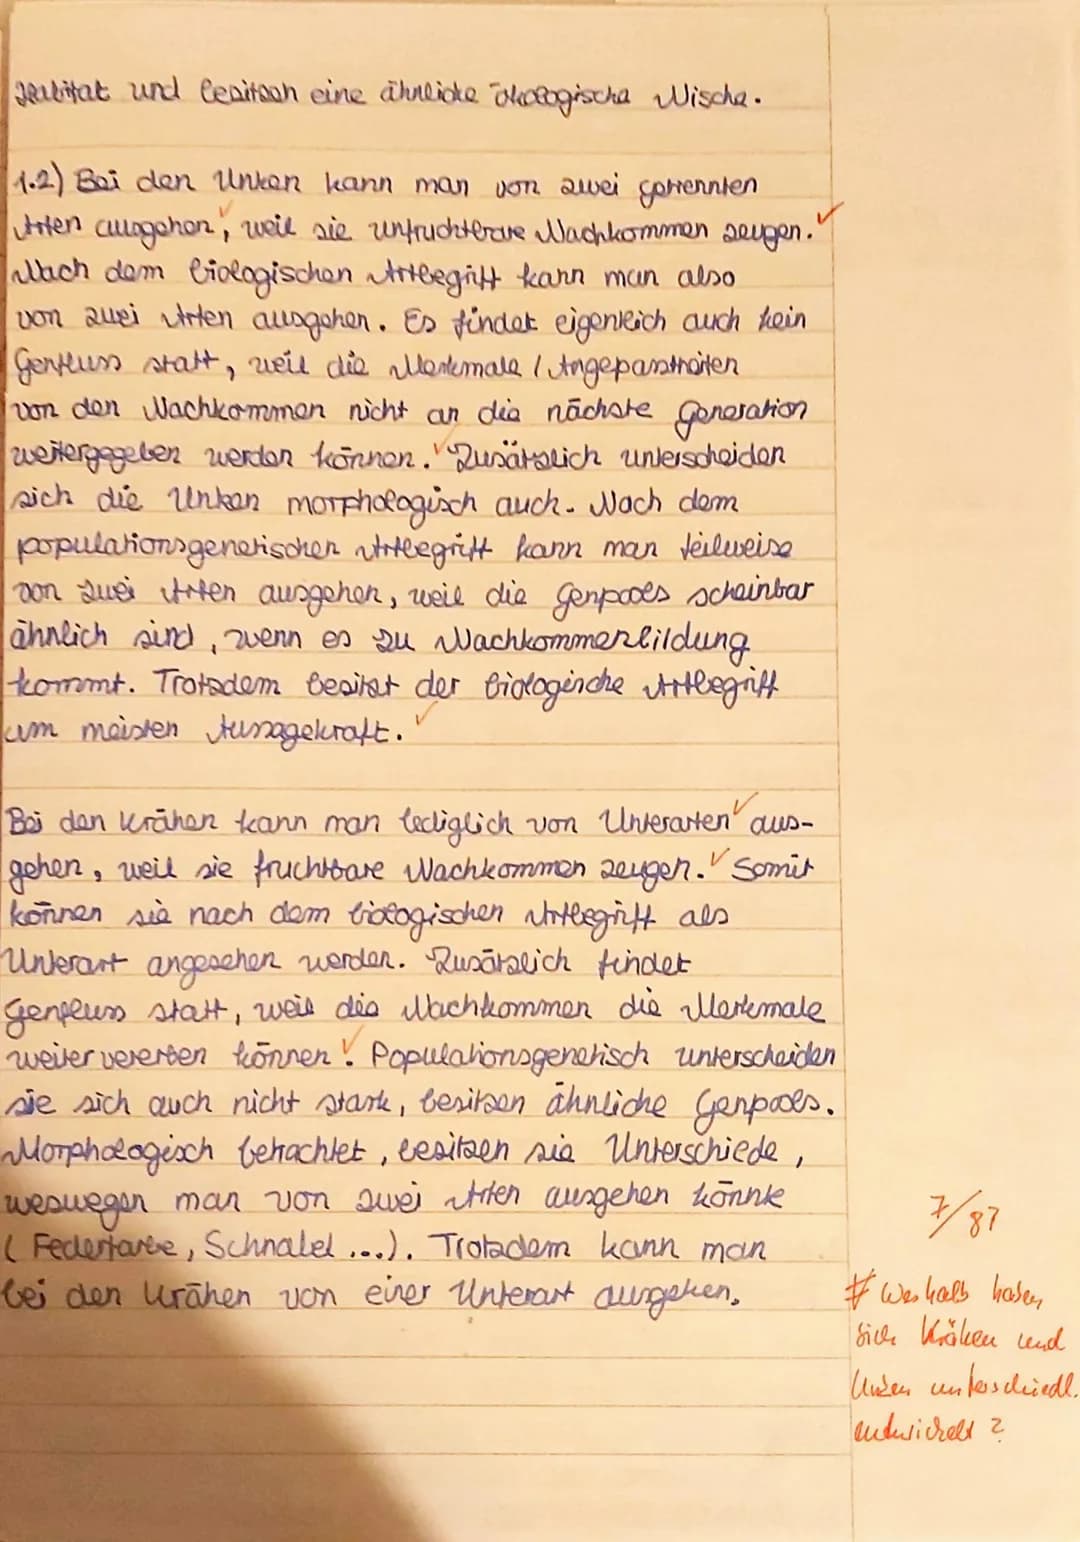 Habitat und besitzen eine ähnliche ökologische Nische.
1.2) Bei den Unken kann man von zwei getrennten
Arten ausgehen, weil sie unfruchtbare Nachkommen zeugen.
Nach dem biologischen Artbegriff kann man also
von zwei Arten ausgehen. Es findet eigentlich auch kein
Genfluss statt, weil die Merkmale / Angepasstheiten
von den Nachkommen nicht an die nächste Generation
weitergegeben werden können. Zusätzlich unterscheiden
sich die Unken morphologisch auch. Nach dem
populationsgenetischen Artbegriff kann man teilweise
von zwei Arten ausgehen, weil die Genpools scheinbar
ähnlich sind, wenn es zu Nachkommenbildung
kommt. Trotzdem besitzt der biologische Artbegriff
am meisten Aussagekraft.
Bei den Krähen kann man lediglich von Unterarten aus-
gehen, weil sie fruchtbare Nachkommen zeugen. Somit
können sie nach dem biologischen Artbegriff als
Unterart angesehen werden. Zusätzlich findet
Genfluss statt, weil die Nachkommen die Merkmale
weiter vererben können. Populationsgenetisch unterscheiden
sie sich auch nicht stark, besitzen ähnliche Genpools.
Morphologisch betrachtet, besitzen sie Unterschiede,
weswegen man von zwei Arten ausgehen könnte
(Federfarbe, Schnabel ...). Trotzdem kann man
bei den Krähen von einer Unterart ausgehen.
7/87
# Weshalb haben
sich Krähen und
Unken unterschiedl.
entwickelt?